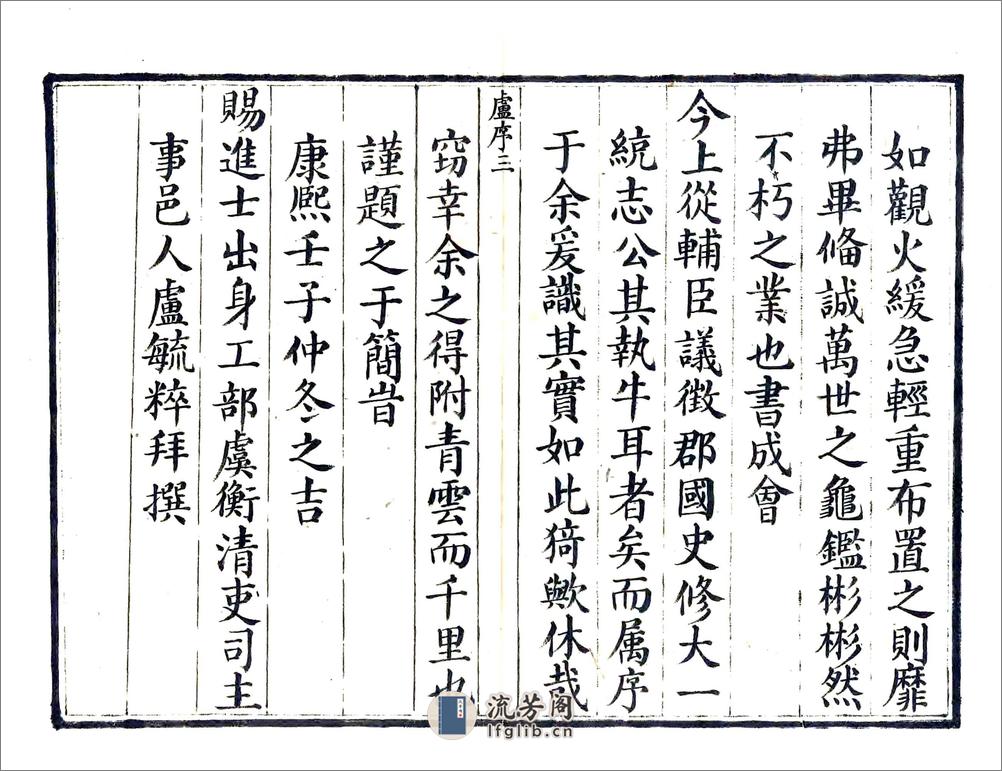 如觀火緩急輕重布置之則靡
弗畢俻誠萬世之龜鑑彬彬然
不朽之業也書成會
今上從輔臣議徴郡國史修大一
統志公其執牛耳者矣而属序
于余爰識其實如此猗歟休哉
盧序三
窃幸余之得附青雲而千里也
謹題之于簡旹
康熙壬子仲冬之吉
賜進士出身工部虞衡清吏司主
事邑人盧毓粹拜撰
流芳阁
lfglib.cn